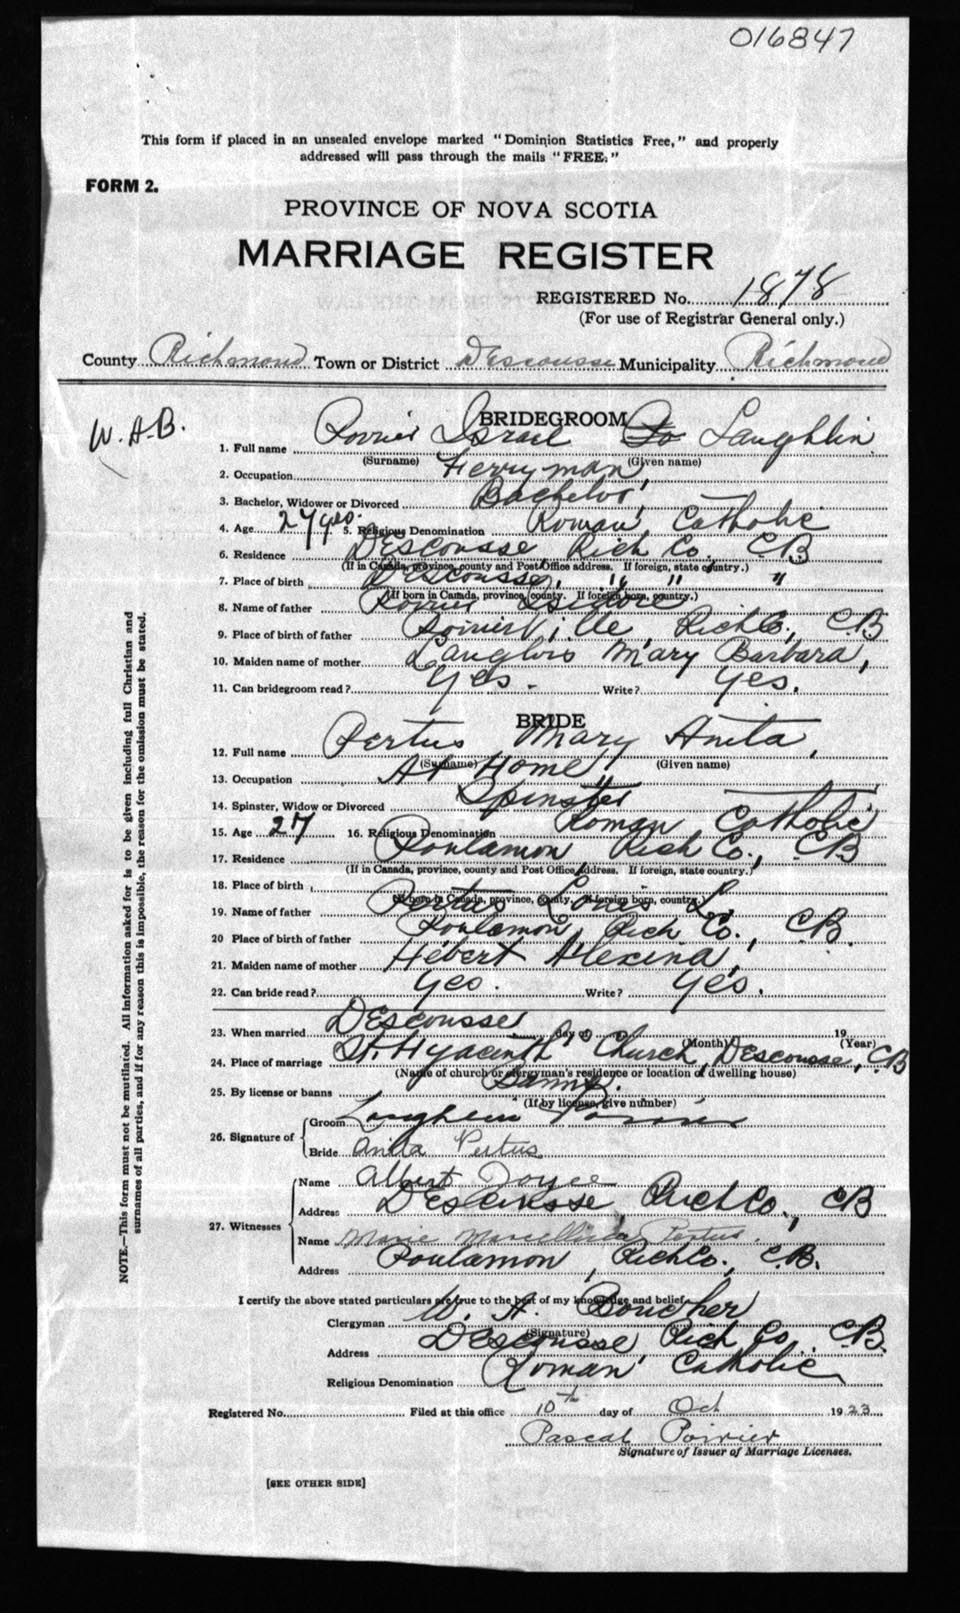 016847
This form if placed in an unsealed envelope marked "Dominion Statistics Free," and properly
addressed will pass through the mails "FREE."
FORM 2.
PROVINCE OF NOVA SCOTIA
MARRIAGE REGISTER
REGISTERED No. 1878
(For use of Registrar General only.)
County Richmond Town or District Descousse Municipality Richmond
W. A. B.
BRIDEGROOM
1. Full name Poirier Israel Laughlin
(Surname) (Given name)
2. Occupation Ferryman
3. Bachelor, Widower or Divorced Bachelor
4. Age 27 yrs. 5. Religious Denomination Roman Catholic
6. Residence Descousse, Rich Co., C.B
(If in Canada, province, county and Post Office address. If foreign, state country.)
7. Place of birth Descousse, " " "
(If born in Canada, province, county. If foreign born, country.)
8. Name of father Poirier Isidore
9. Place of birth of father PoirierVille, Rich Co., C.B
10. Maiden name of mother Langlois Mary Barbara,
11. Can bridegroom read? Yes. Write? Yes.
BRIDE
12. Full name Pertus Mary Anita,
(Surname) (Given name)
13. Occupation At Home,
14. Spinster, Widow or Divorced Spinster
15. Age 27 16. Religious Denomination Roman Catholic
17. Residence Poulamon Rich Co., C.B
(If in Canada, province, county and Post Office Address. If foreign, state country.)
18. Place of birth
(If born in Canada, province, county. If foreign born, country.)
19. Name of father Pertus Louis L.
20 Place of birth of father Poulamon, Rich Co., C.B.
21. Maiden name of mother Hébert Alexina,
22. Can bride read? Yes. Write? Yes.
23. When married Descousse day of 19
(Month) (Year)
24. Place of marriage St. Hyacinth Church, Descousse, C.B
(Name of church or clergyman's residence or location of dwelling house)
25. By license or banns Banns.
(If by license, give number)
26. Signature of
Groom
Bride Anita Pertus
27. Witnesses
Name Albert Joyce
Address Descousse Rich Co., C.B
Name Marie Pertus.
Address Poulamon, Rich Co., C.B.
I certify the above stated particulars are true to the best of my knowledge and belief.
Clergyman W. A. Boucher
(Signature)
Address Descousse, Rich Co., C.B.
Religious Denomination Roman Catholic
Registered No. Filed at this office 10th day of Oct 1923
Pascal Poirier
Signature of Issuer of Marriage Licenses.
[SEE OTHER SIDE]
NOTE.—This form must not be mutilated. All information asked for is to be given including full Christian and
surnames of all parties, and if for any reason this is impossible, the reason for the omission must be stated.